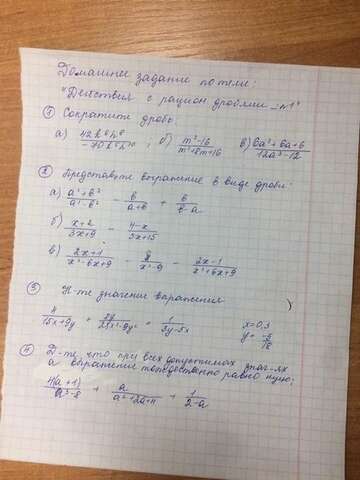 Домашнее задание по теме:
"Действия с рацион дробями
① Сократите дробь:
а) ; б) m²-16/m²+8m+16 в) 6a²+6a+6/12a³-12
② Представьте выражение в виде дроби:
а) a²+b²/a²-b² - b/a+b + b/b-a
б) x+2/3x+9 - 4-x/5x+15
в) 2x+1/x²-6x+9 - 8/x²-9 - 2x-1/x²+6x+9
③ Н-те значение выражения
4/15x+9y + /25x²-9y² + 1/3y-5x x=0,3
④ Д-те, что при всех допустимых знач-ях
a выражение тождественно равно нулю:
4(a+1)/a³-8 + a/a²+2a+4 + 1/2-a